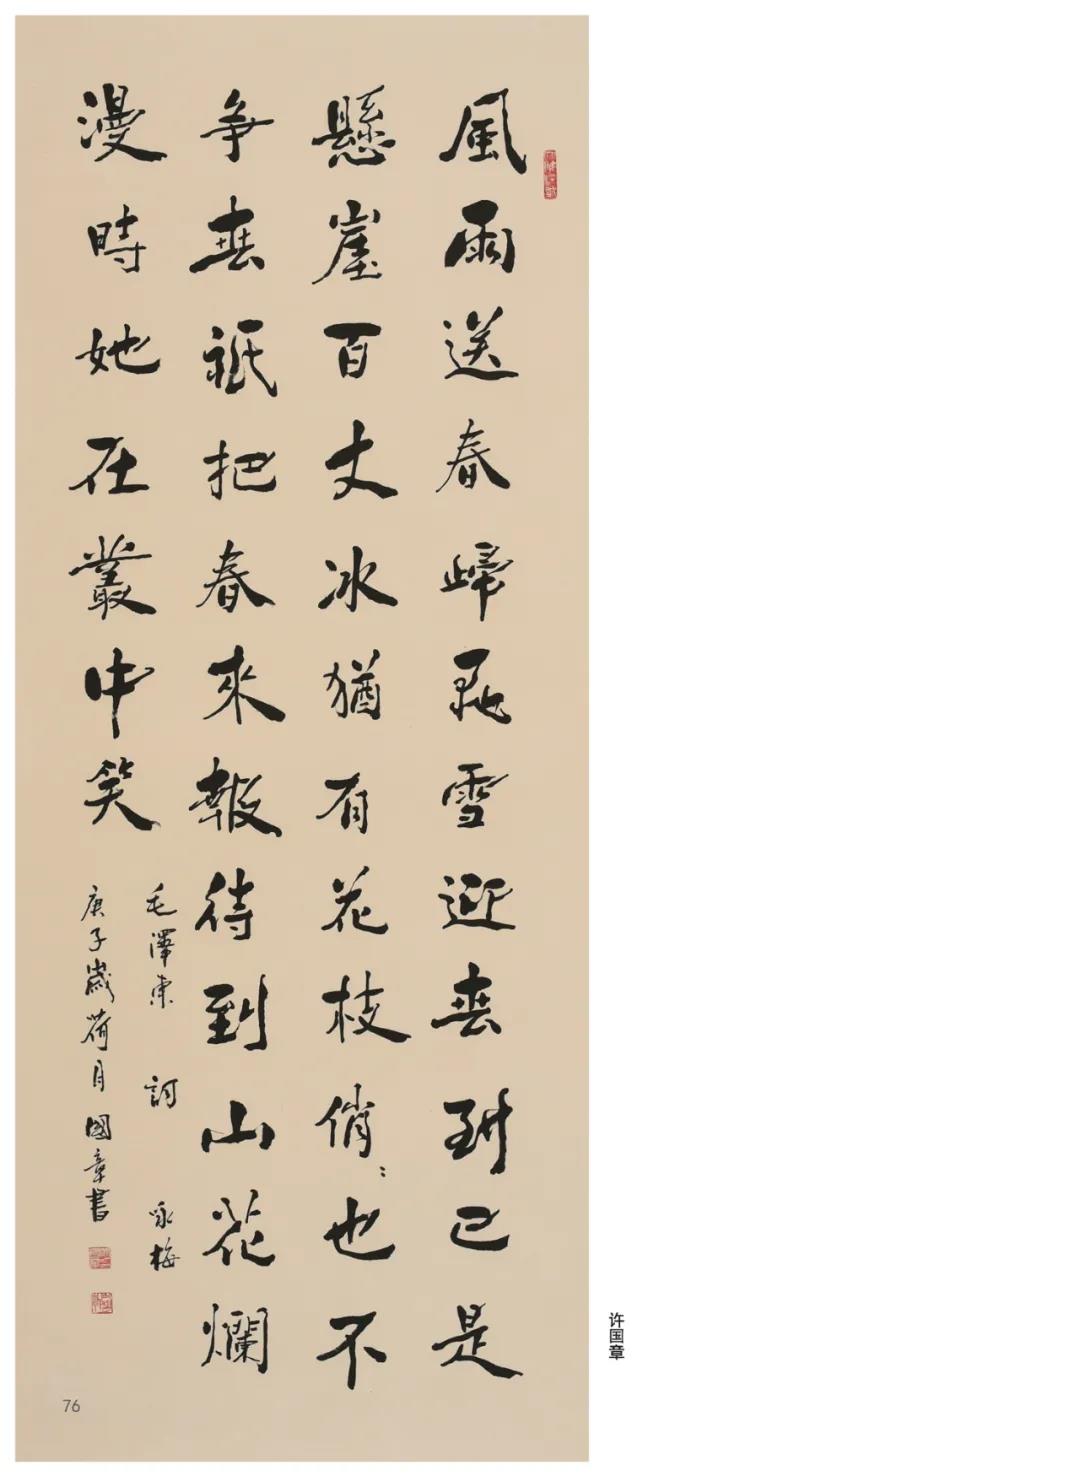 風雨送春歸飛雪迎春到已是
懸崖百丈冰猶有花枝俏〻也不
争春祇把春來報待到山花爛
漫時她在叢中笑
毛澤東 詞 咏梅
庚子歲荷月國章書
许国章
76